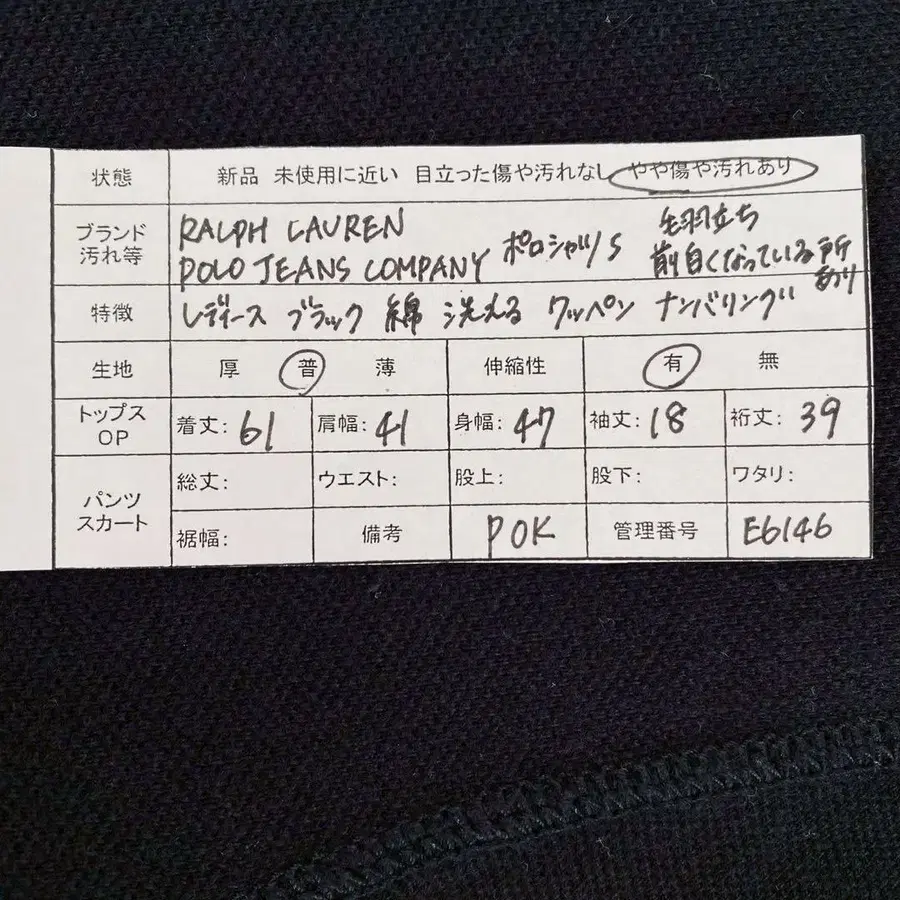 状態 新品 未使用に近い 目立った傷や汚れなし やや傷や汚れあり
ブランド 汚れ等 RALPH LAUREN POLO JEANS COMPANY ポロシャツ S 毛羽立ち 前白くなっている所あり
特徴 レディース ブラック 綿 洗える ワッペン ナンバリング
生地 厚 普 薄 伸縮性 有 無
トップス OP 着丈: 61 肩幅: 41 身幅: 47 袖丈: 18 裄丈: 39
パンツ スカート 総丈: ウエスト: 股上: 股下: ワタリ:
裾幅: 備考 POK 管理番号 E6146